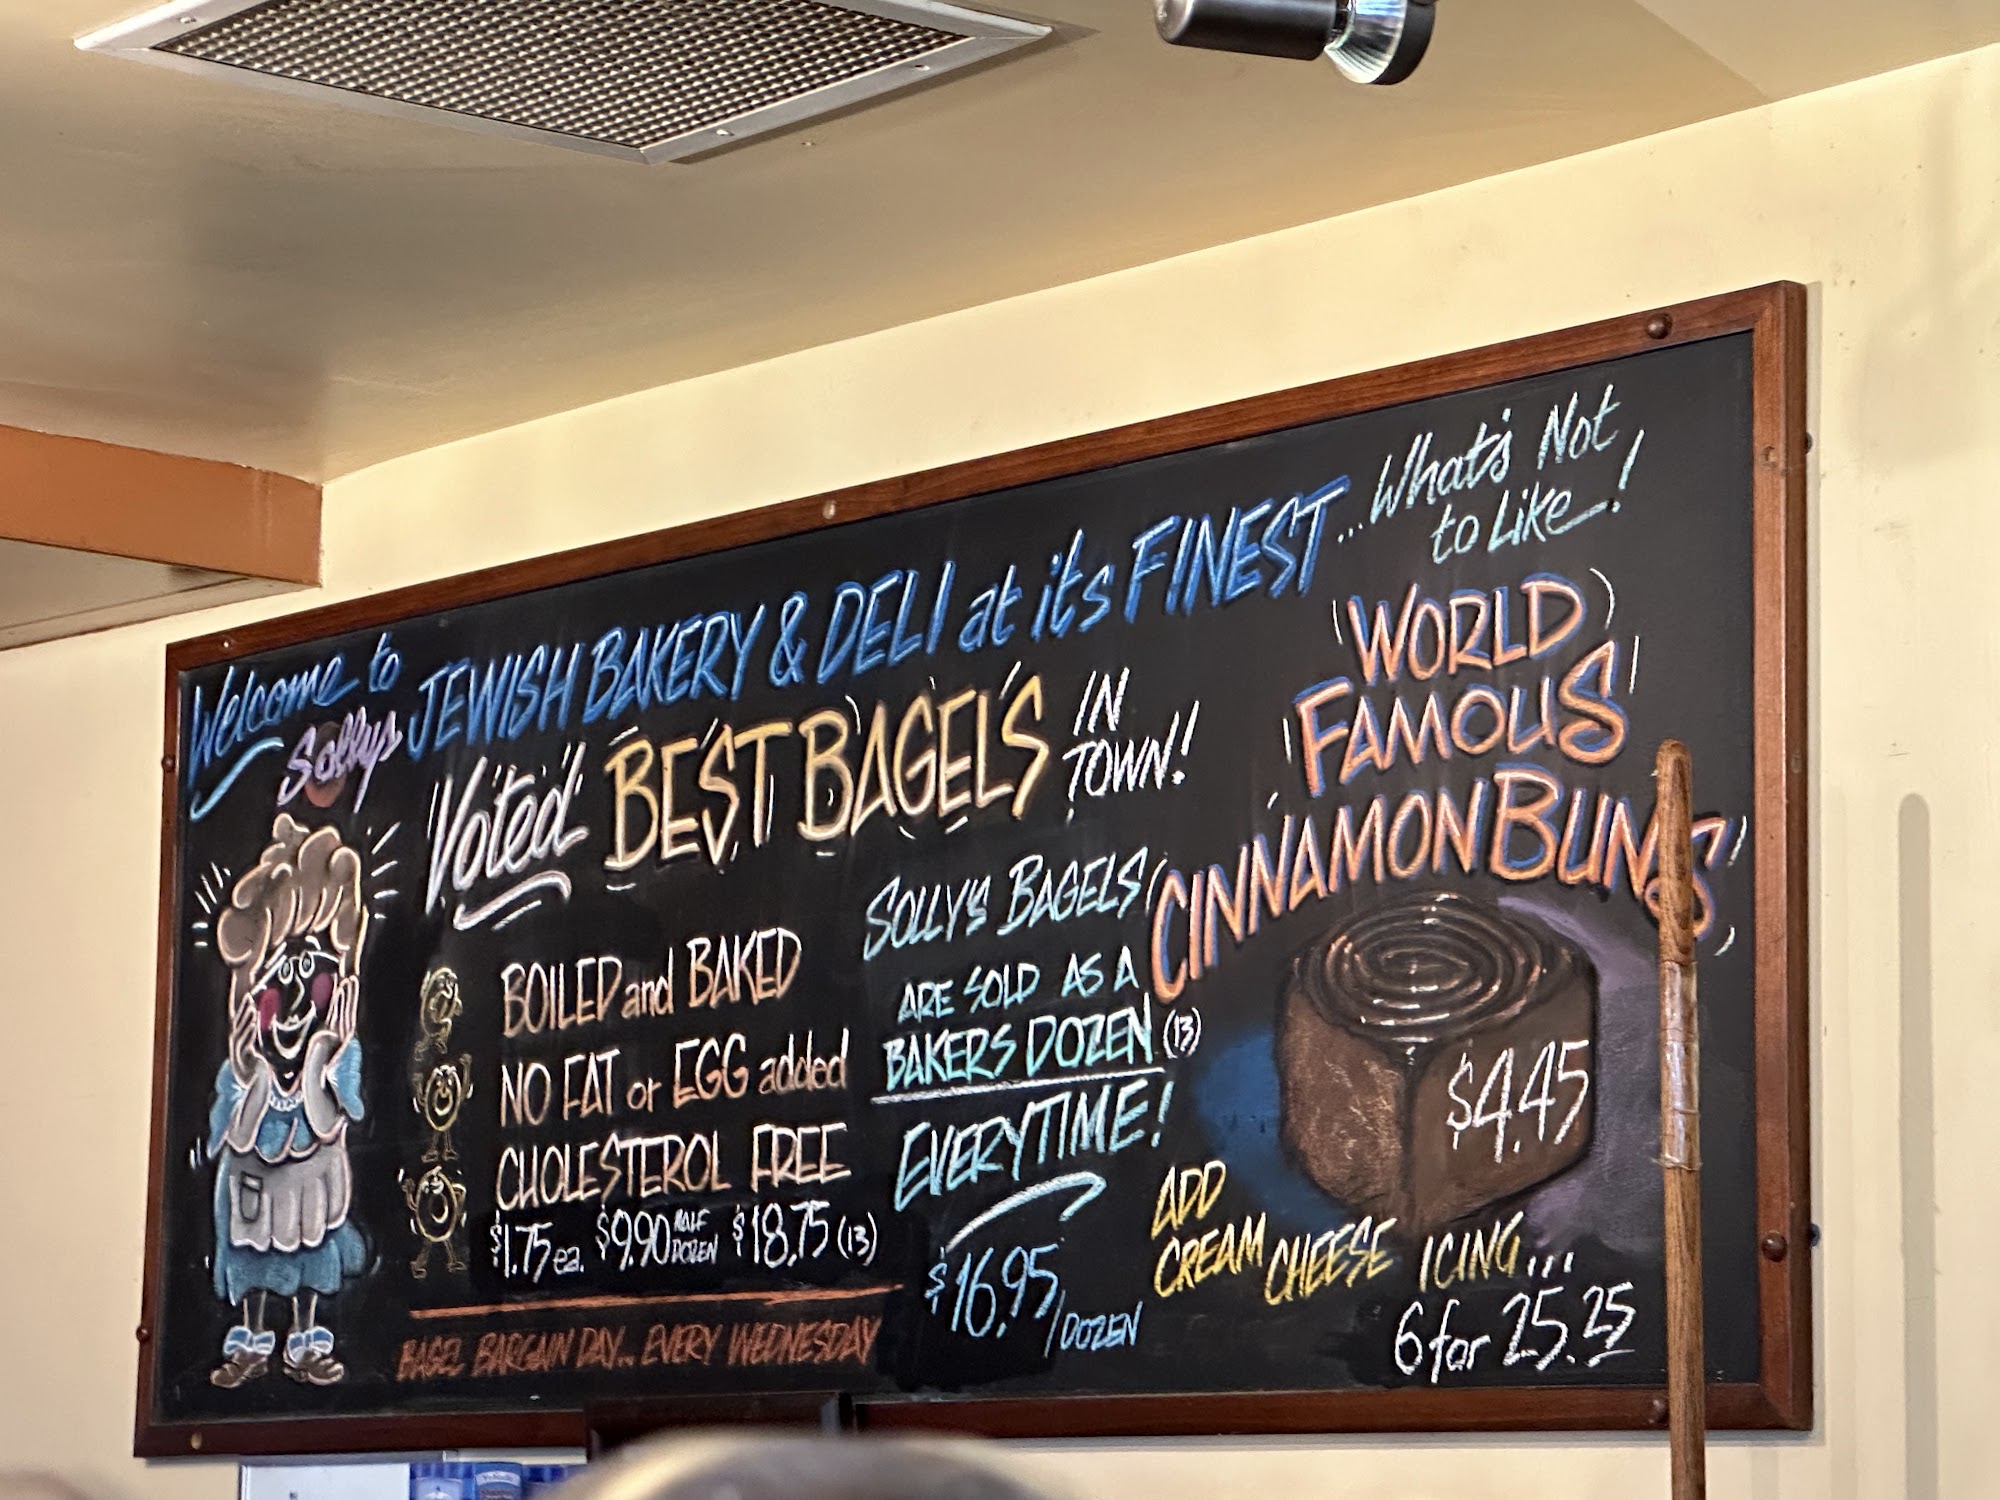 Welcome to
Sollys
JEWISH BAKERY & DELI at it's FINEST
...What's Not
to Like!
"Voted" BEST BAGELS
IN
TOWN!
BOILED and BAKED
NO FAT or EGG added
CHOLESTEROL FREE
$1.75 ea. $9.90 HALF DOZEN $18.75 (13)
BAGEL BARGAIN DAY... EVERY WEDNESDAY
SOLLY'S BAGELS
ARE SOLD AS A
BAKERS DOZEN (13)
EVERYTIME!
$16.95/DOZEN
WORLD
FAMOUS
CINNAMON BUNS
$4.45
ADD
CREAM CHEESE ICING...
6 for 25.25